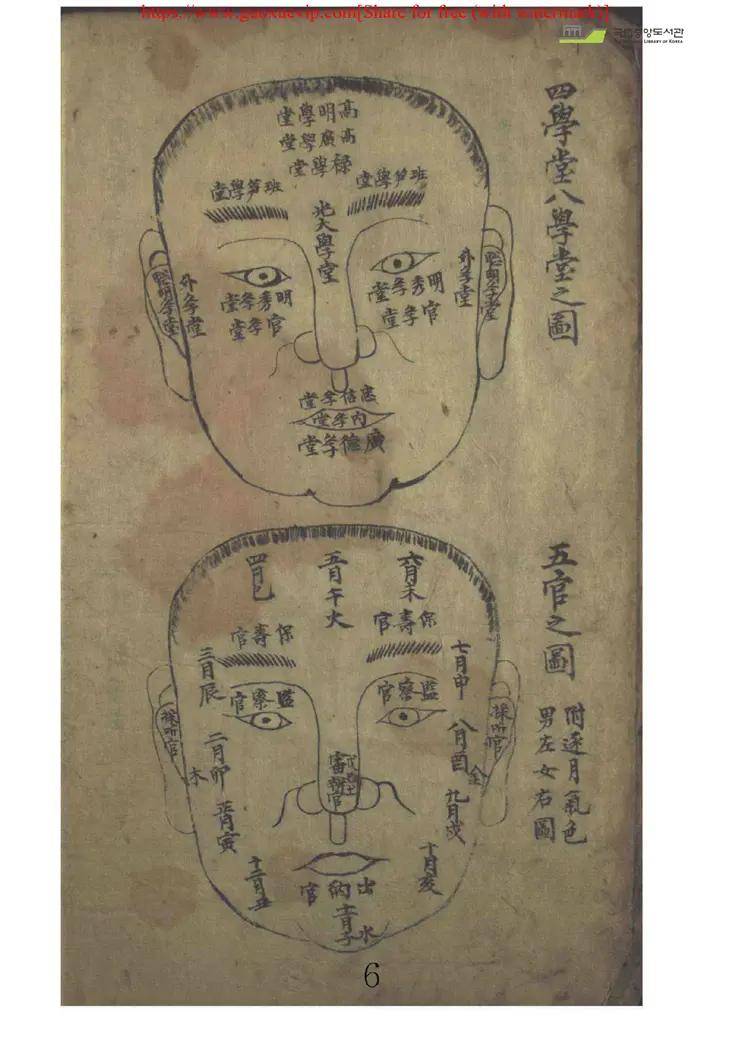 https://www.guoxuevip.com[Share for free (with watermark)]
국립중앙도서관
四學堂八學堂之圖
高明學堂
高廣學堂
祿學堂
班笋學堂
班笋學堂
聰明孝堂
外孝堂
明秀孝堂
官孝堂
明秀孝堂
官孝堂
外孝堂
聰明孝堂
忠信孝堂
內孝堂
廣德孝堂
五官之圖
附逐月氣色
男左女右圖
六月未
五月午火
四月巳
保壽官
保壽官
七月申
三月辰
監察官
監察官
採听官
採听官
八月酉
金
二月卯
木
九月戌
正月寅
十月亥
十二月丑
出納官
水
6